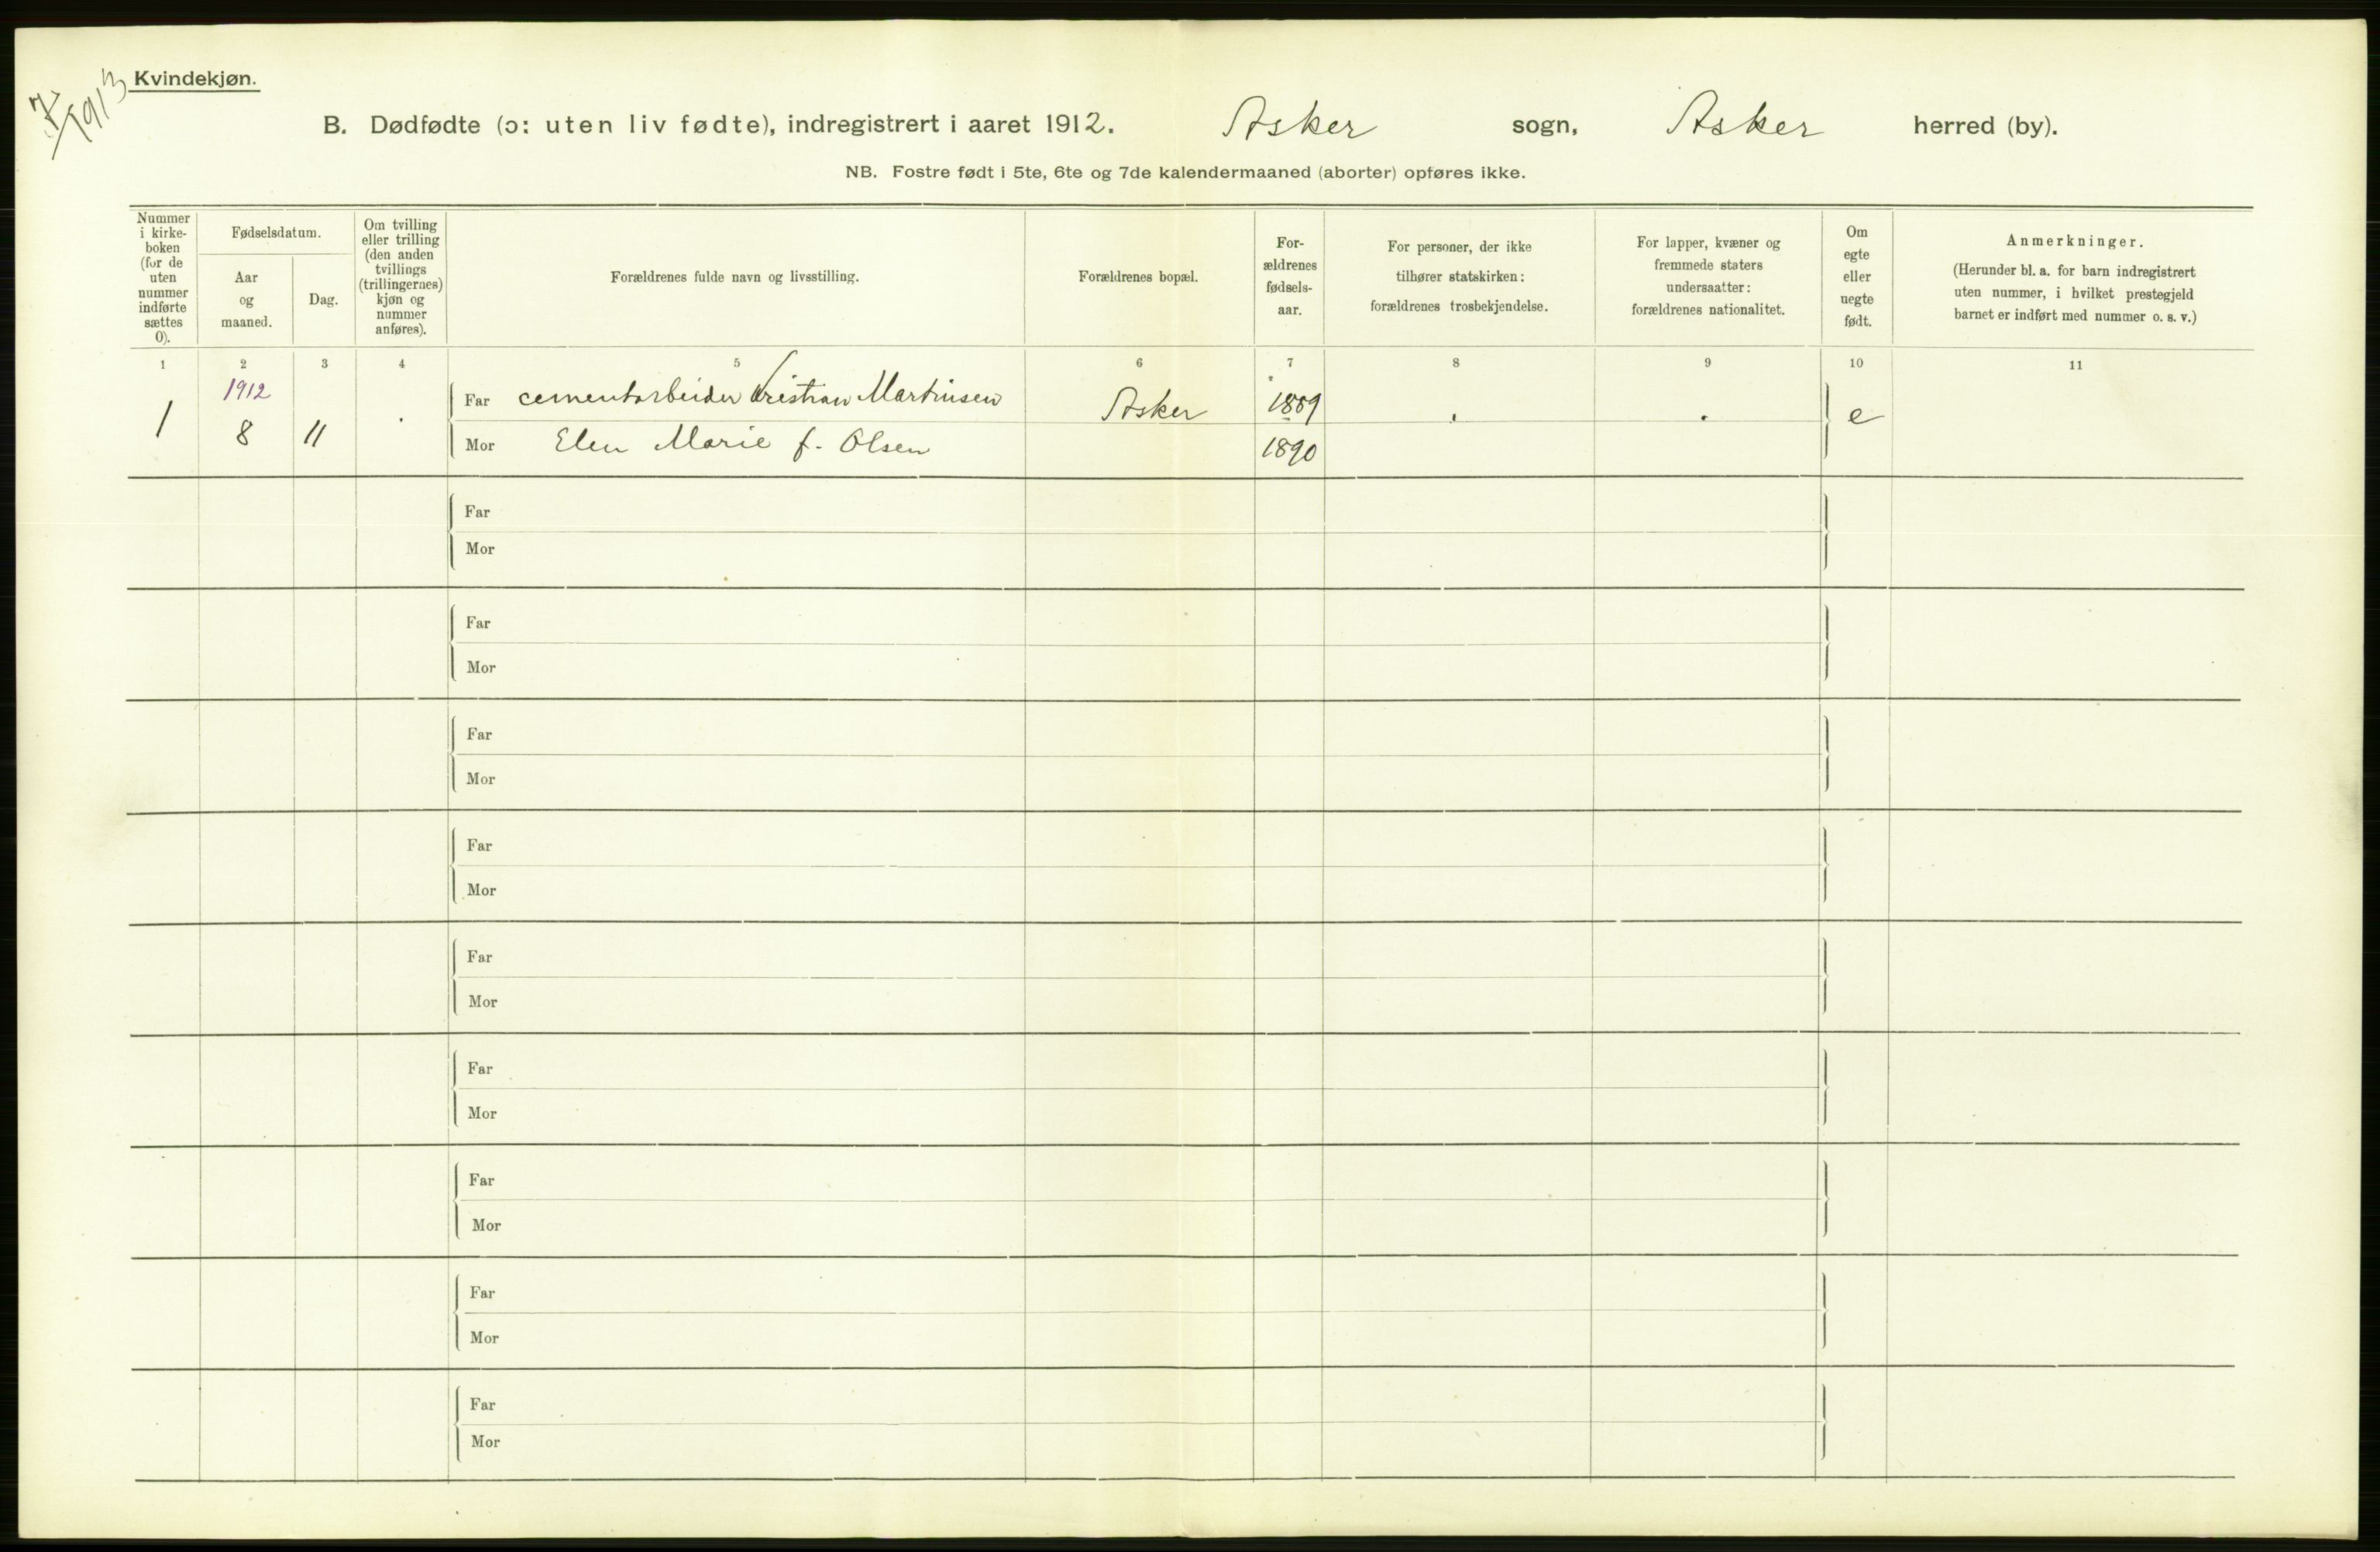 7/1913
Kvindekjøn.
B. Dødfødte (ɔ: uten liv fødte), indregistrert i aaret 1912. Asker sogn, Asker herred (by).
NB. Fostre født i 5te, 6te og 7de kalendermaaned (aborter) opføres ikke.
Nummer
i kirke-
boken
(for de
uten
nummer
indførte
sættes
0).
Fødselsdatum.
Aar
og
maaned.
Dag.
Om tvilling
eller trilling
(den anden
tvillings
(trillingernes)
kjøn og
nummer
anføres).
Forældrenes fulde navn og livsstilling.
Forældrenes bopæl.
For-
ældrenes
fødsels-
aar.
For personer, der ikke
tilhører statskirken:
forældrenes trosbekjendelse.
For lapper, kvæner og
fremmede staters
undersaatter:
forældrenes nationalitet.
Om
egte
eller
uegte
født.
Anmerkninger.
(Herunder bl. a. for barn indregistrert
uten nummer, i hvilket prestegjeld
barnet er indført med nummer o. s. v.)
1 2 3 4 5 6 7 8 9 10 11
1 1912 8 11 . Far cementarbeider Kristian Martinsen Asker 1889 . . e
Mor Elen Marie f. Olsen 1890
Far
Mor
Far
Mor
Far
Mor
Far
Mor
Far
Mor
Far
Mor
Far
Mor
Far
Mor
Far
Mor